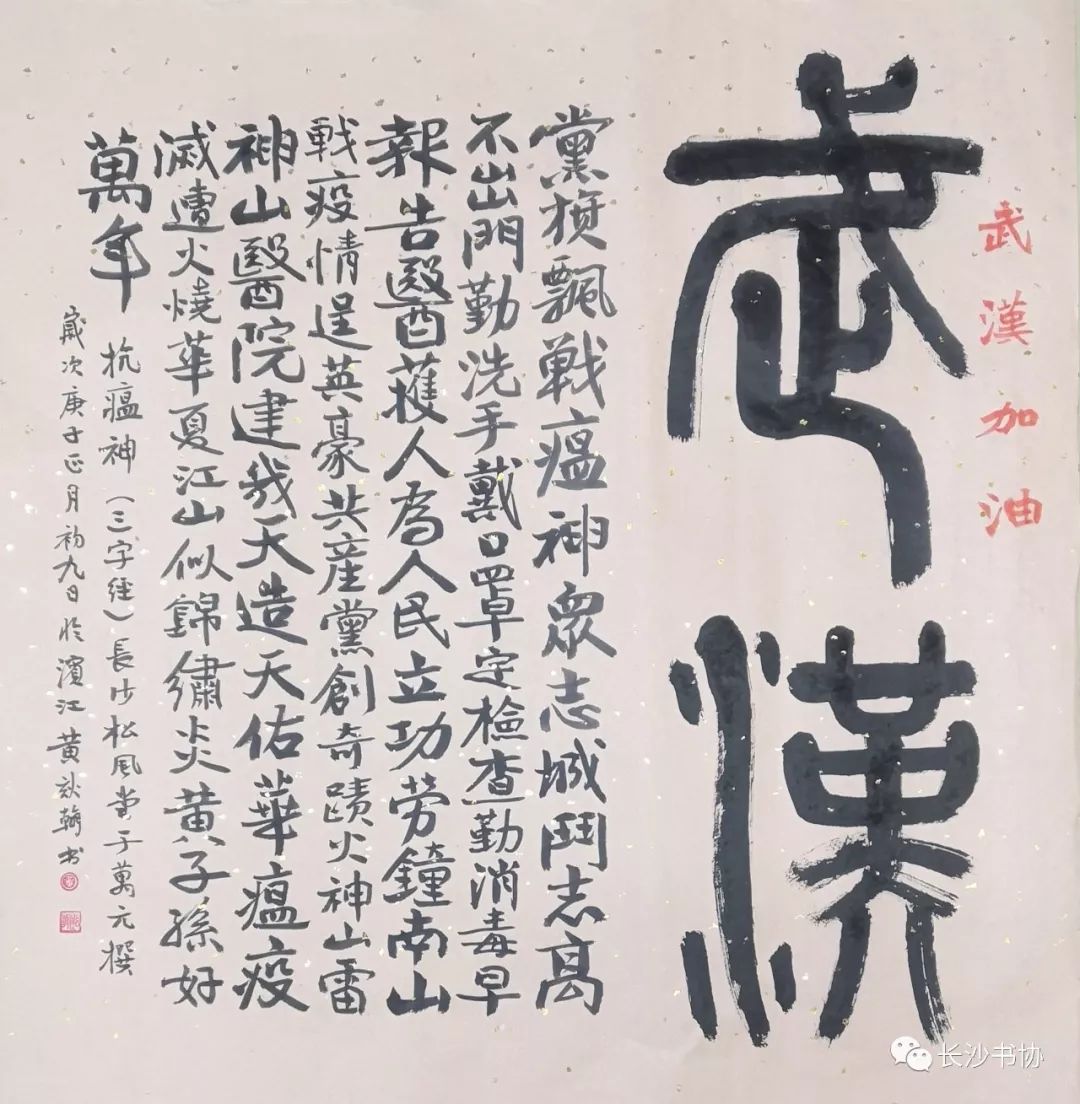 武漢加油
武漢
黨旗飄戰瘟神眾志城鬥志高
不出門勤洗手戴口罩定檢查勤消毒早
報告醫護人為人民立功勞鐘南山
戰疫情逞英豪共產黨創奇蹟火神山雷
神山醫院建我天造天佑華瘟疫
滅遭火燒華夏江山似錦繡炎黃子孫好
萬年
抗瘟神（三字經）長沙松風堂于萬元撰
歲次庚子正月初九日於濱江黃
书
长沙书协